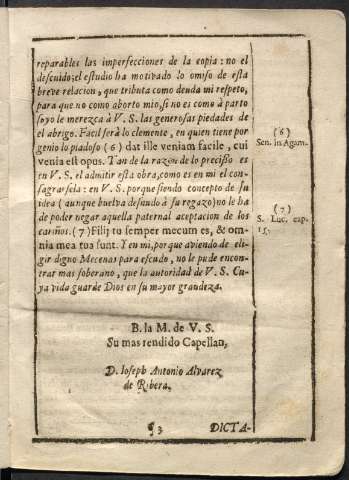 reparables las imperfecciones de la copia: no el
descuido; el estudio ha motivado lo omiso de esta
breve relacion, que tributa como deuda mi respeto,
para que no como aborto mio, si no es como à parto
suyo le merezca à V. S. las generosas piedades de
el abrigo. Facil serà lo clemente, en quien tiene por
genio lo piadoso (6) dat ille veniam facile, cui
venia est opus. Tan de la razon de lo precisso es
en V. S. el admitir esta obra, como es en mi el con-
sagrarsela: en V. S. porque siendo concepto de su
idea (aunque buelva desnudo à su regazo) no le ha
de poder negar aquella paternal aceptacion de los
cariños. (7) Filij tu semper mecum es, & om-
nia mea tua sunt. Y en mi, por que aviendo de ele-
gir digno Mecenas para escudo, no le pude encon-
trar mas soberano, que la autoridad de V. S. Cu-
ya vida guarde Dios en su mayor grandeza.
(6)
Sen. in Agam.
(7)
S. Luc. cap.
15.
B. la M. de V. S.
Su mas rendido Capellan,
D. Ioseph Antonio Alvarez
de Ribera.
¶3
DICTA-